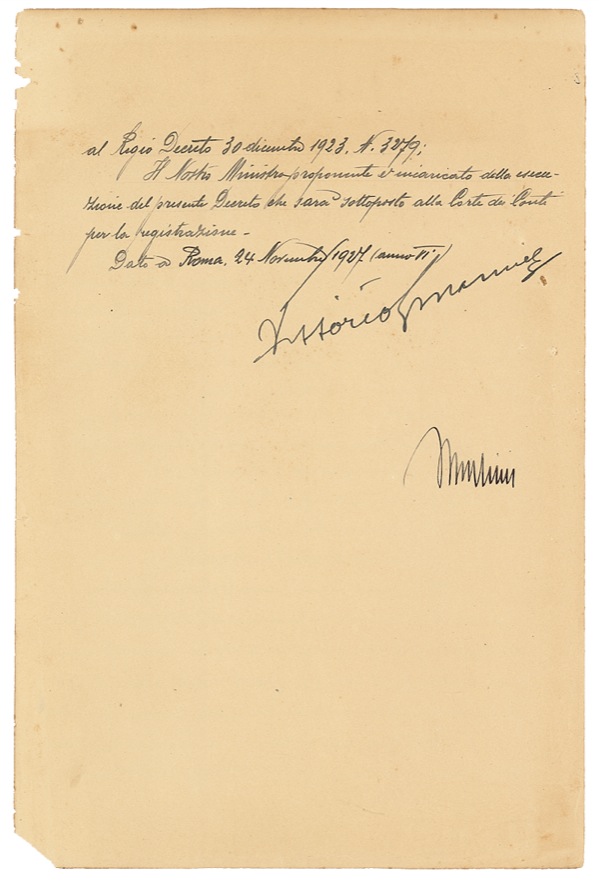 al Regio Decreto 30 dicembre 1923. N. 3279;
Il Nostro Ministro proponente è incaricato della esecu-
zione del presente Decreto che sarà sottoposto alla Corte dei Conti
per la registrazione -
Dato a Roma, 24 Novembre 1927 (anno VI.)
Vittorio Emanuele
Mussolini